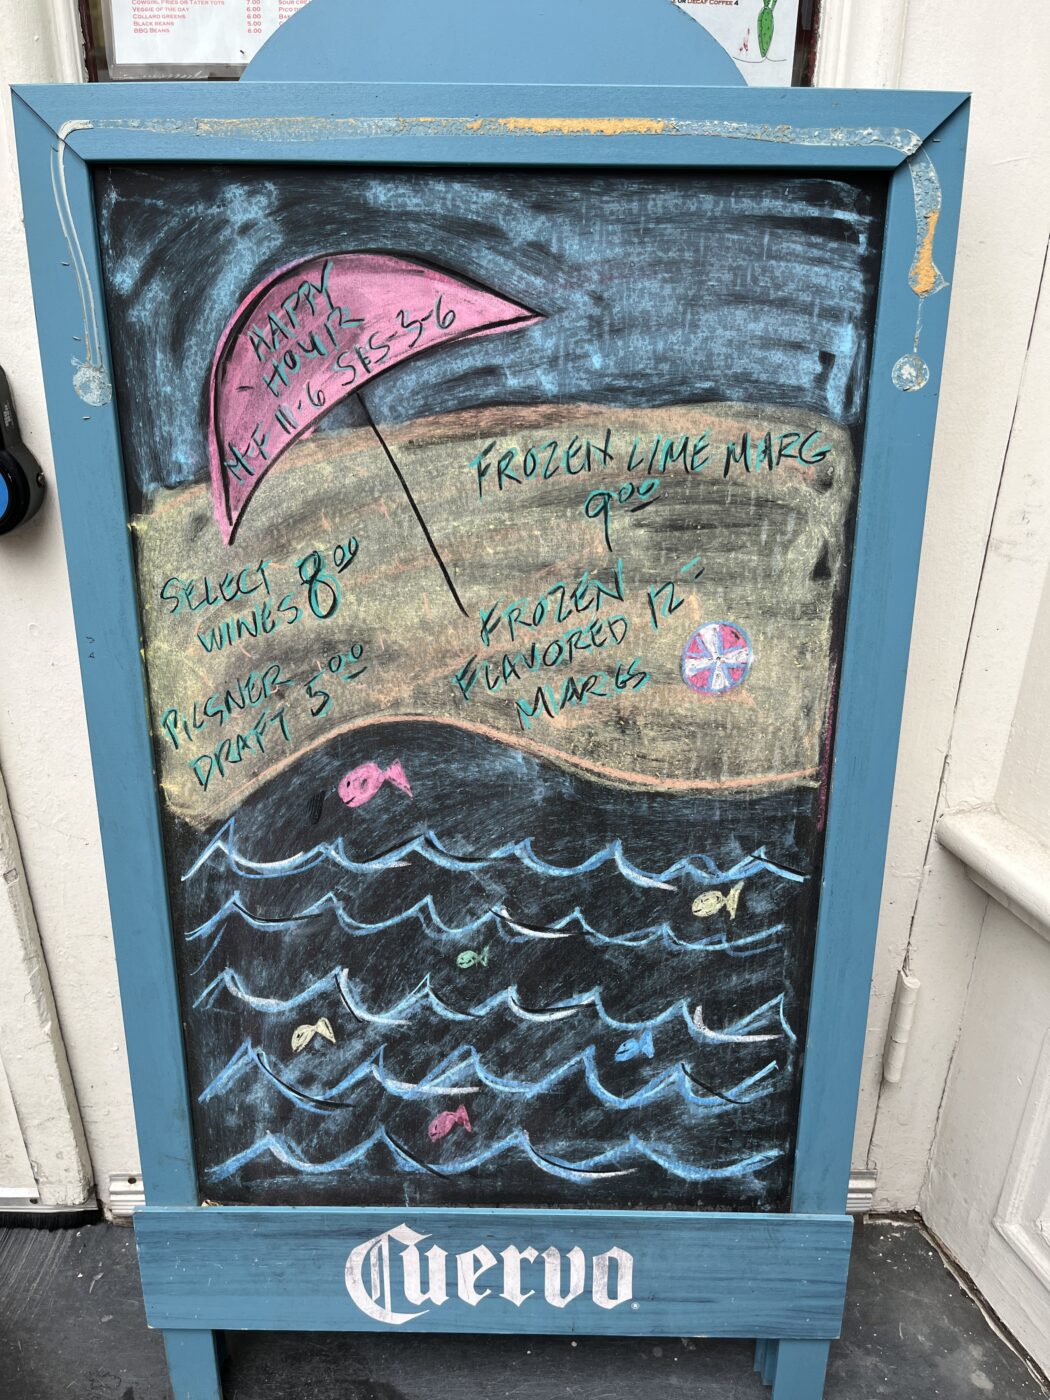 COWGIRL FRIES OR TATER TOTS 7.00
VEGGIE OF THE DAY 6.00
COLLARD GREENS 6.00
BLACK BEANS 5.00
BBQ BEANS 6.00
OR DECAF COFFEE 4
HAPPY
HOUR
M-F 11-6 S&S-3-6
FROZEN LIME MARG
9.00
SELECT
WINES 8.00
FROZEN
FLAVORED 12-
MARGS
PILSNER
DRAFT 5.00
Cuervo